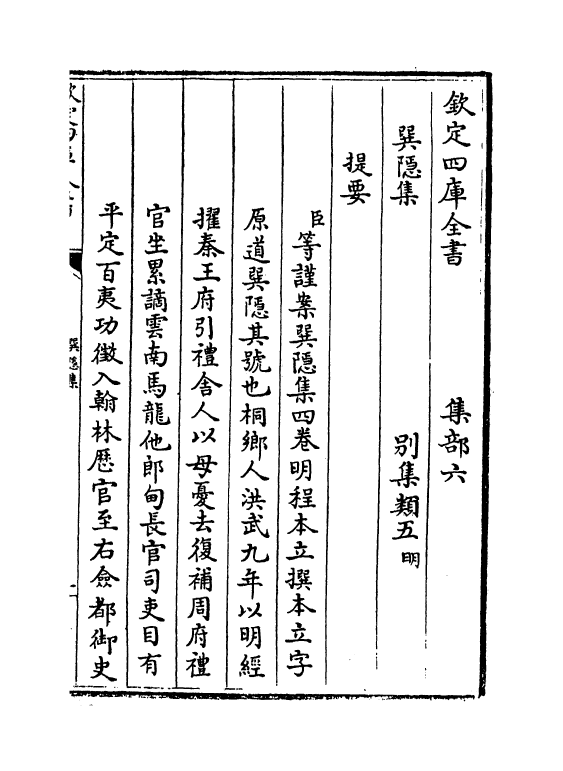 欽定四庫全書　集部六
巽隱集　別集類五明
提要
臣等謹案巽隱集四卷明程本立撰本立字
原道巽隱其號也桐鄉人洪武九年以明經
擢秦王府引禮舍人以母憂去復補周府禮
官坐累謫雲南馬龍他郎甸長官司吏目有
平定百夷功徵入翰林歷官至右僉都御史
巽隱集